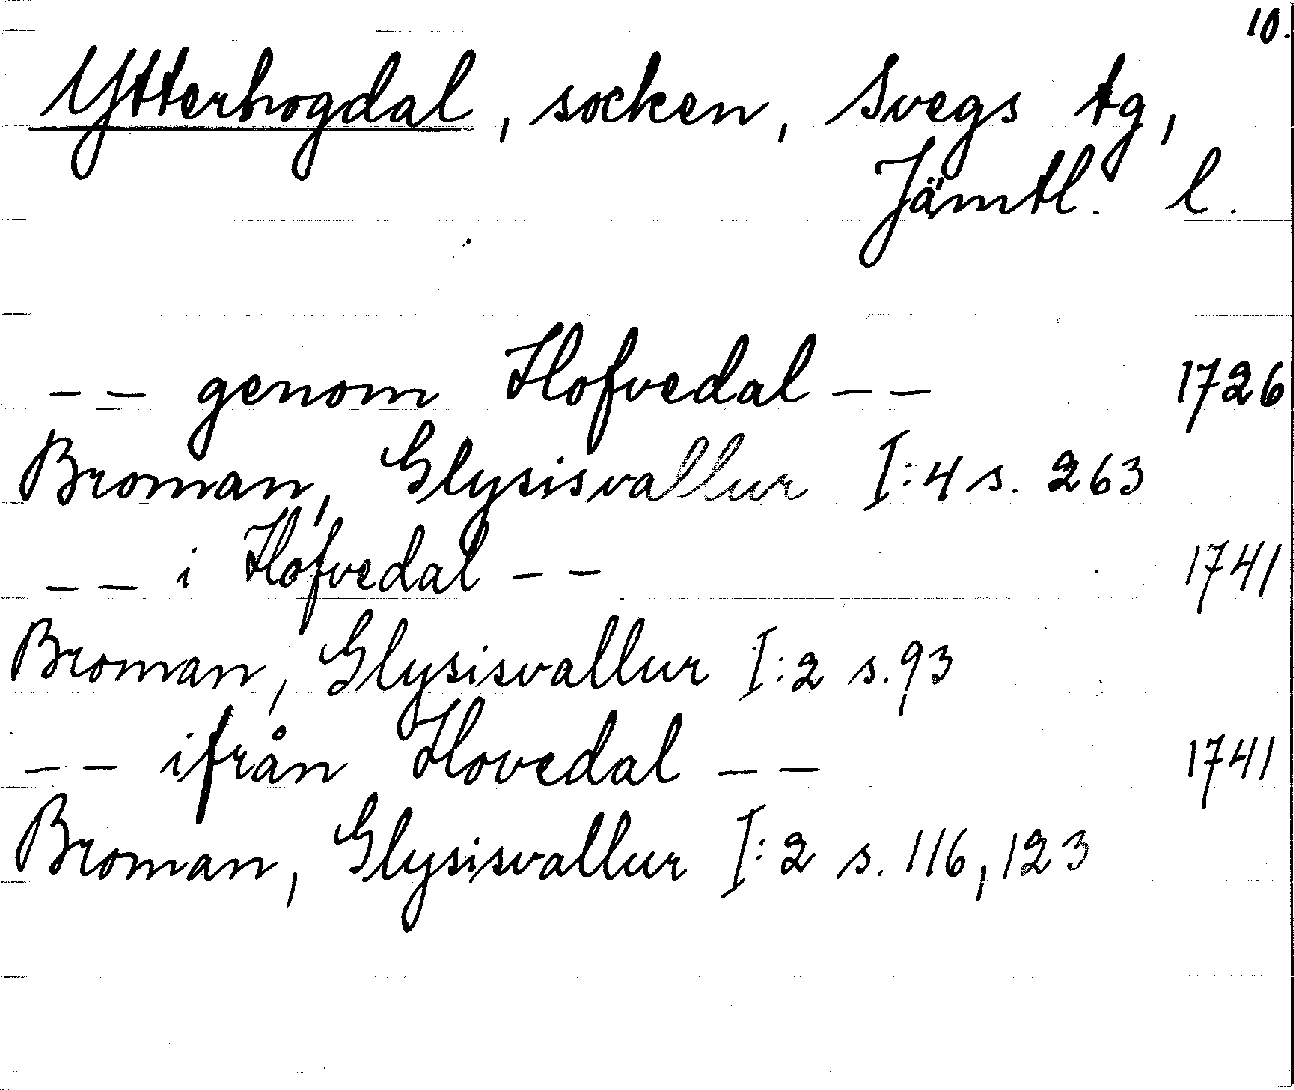 10.
Ytterhogdal, socken, Svegs tg,
Jämtl. l.
-- genom Hofvedal -- 1726
Broman, Glysisvallur I:4 s. 263
-- i Hofvedal -- 1741
Broman, Glysisvallur I:2 s. 93
-- ifrån Hovedal -- 1741
Broman, Glysisvallur I:2 s. 116, 123